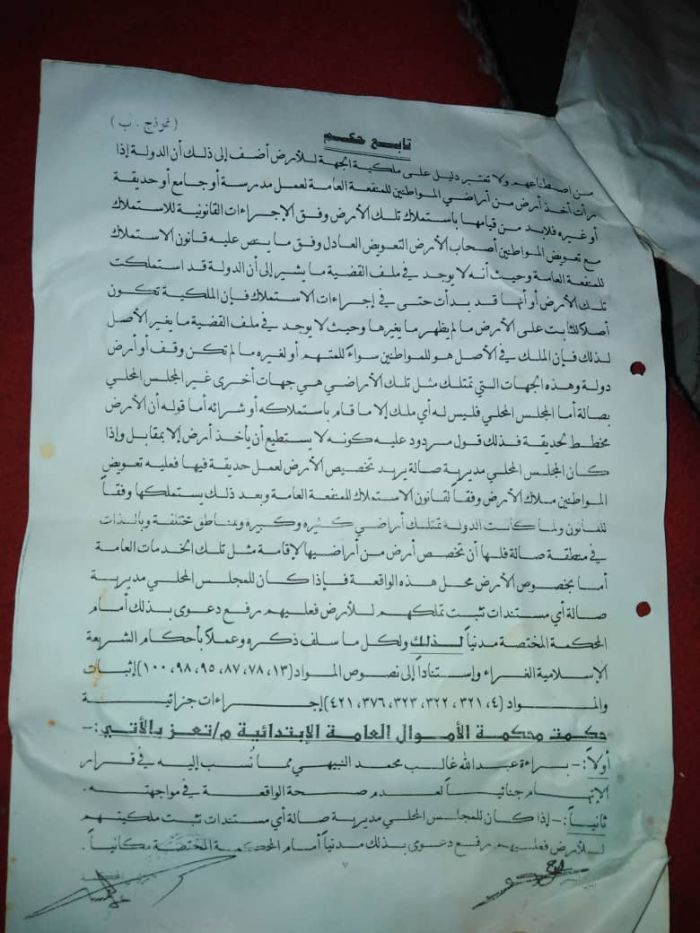 (نموذج . ب)
تابع حكم
من اصطناعهم ولا تعتبر دليل على ملكية الجهة للأرض أضف إلى ذلك أن الدولة إذا
رأت أخذ أرض من أراضي المواطنين للمنفعة العامة لعمل مدرسة أو جامع أو حديقة
أو غيره فلابد من قيامها باستملاك تلك الأرض وفق الإجراءات القانونية للاستملاك
مع تعويض المواطنين أصحاب الأرض التعويض العادل وفق ما ينص عليه قانون الاستملاك
للمنفعة العامة وحيث أنه لا يوجد في ملف القضية ما يشير إلى أن الدولة قد استملكت
تلك الأرض أو أنها قد بدأت حتى في إجراءات الاستملاك فإن الملكية تكون
أصلاً للثابت على الأرض مالم يظهر ما يغيرها وحيث لا يوجد في ملف القضية ما يغير الأصل
لذلك فإن الملك في الأصل هو للمواطنين سواءً للمتهم أو لغيره مالم تكن وقف أو أرض
دولة وهذه الجهات التي تمتلك مثل تلك الأراضي هي جهات أخرى غير المجلس المحلي
بصالة أما المجلس المحلي فليس له أي ملك إلا ما قام باستملاكه أو شرائه أما قوله أن الأرض
مخطط لحديقة فذلك قول مردود عليه كونه لا يستطيع أن يأخذ أرض إلا بمقابل وإذا
كان المجلس المحلي مديرية صالة يريد تخصيص الأرض لعمل حديقة فيها فعليه تعويض
المواطنين ملاك الأرض وفقاً لقانون الاستملاك للمنفعة العامة وبعد ذلك يستملكها وفقاً
للقانون ولما كانت الدولة تمتلك أراضي كثيره وكبيره وبمناطق مختلفة وبالذات
في منطقة صالة فلها أن تخصص أرض من أراضيها لإقامة مثل تلك الخدمات العامة
أما بخصوص الأرض محل هذه الواقعة فإذا كان للمجلس المحلي مديرية
صالة أي مستندات تثبت تملكهم للأرض فعليهم رفع دعوى بذلك أمام
المحكمة المختصة مدنياً لذلك ولكل ما سلف ذكره وعملاً بأحكام الشريعة
الإسلامية الغراء وإستناداً إلى نصوص المواد (١٣، ٧٨، ٨٧، ٩٥، ٩٨، ١٠٠) إثبات
والمواد (٤، ٣٢١، ٣٢٢، ٣٢٣، ٣٧٦، ٤٢١) إجراءات جزائية
حكمت محكمة الأموال العامة الإبتدائية م/تعز بالأتي :-
أولاً :- براءة عبدالله غالب محمد النبيهي مما نُسب إليه في قرار
الإتهام جنائياً لعدم صحة الواقعة في مواجهته .
ثانياً :- إذا كان للمجلس المحلي مديرية صالة أي مستندات تثبت ملكيتهم
للأرض فعليهم رفع دعوى بذلك مدنياً أمام المحكمة المختصة مكانياً .